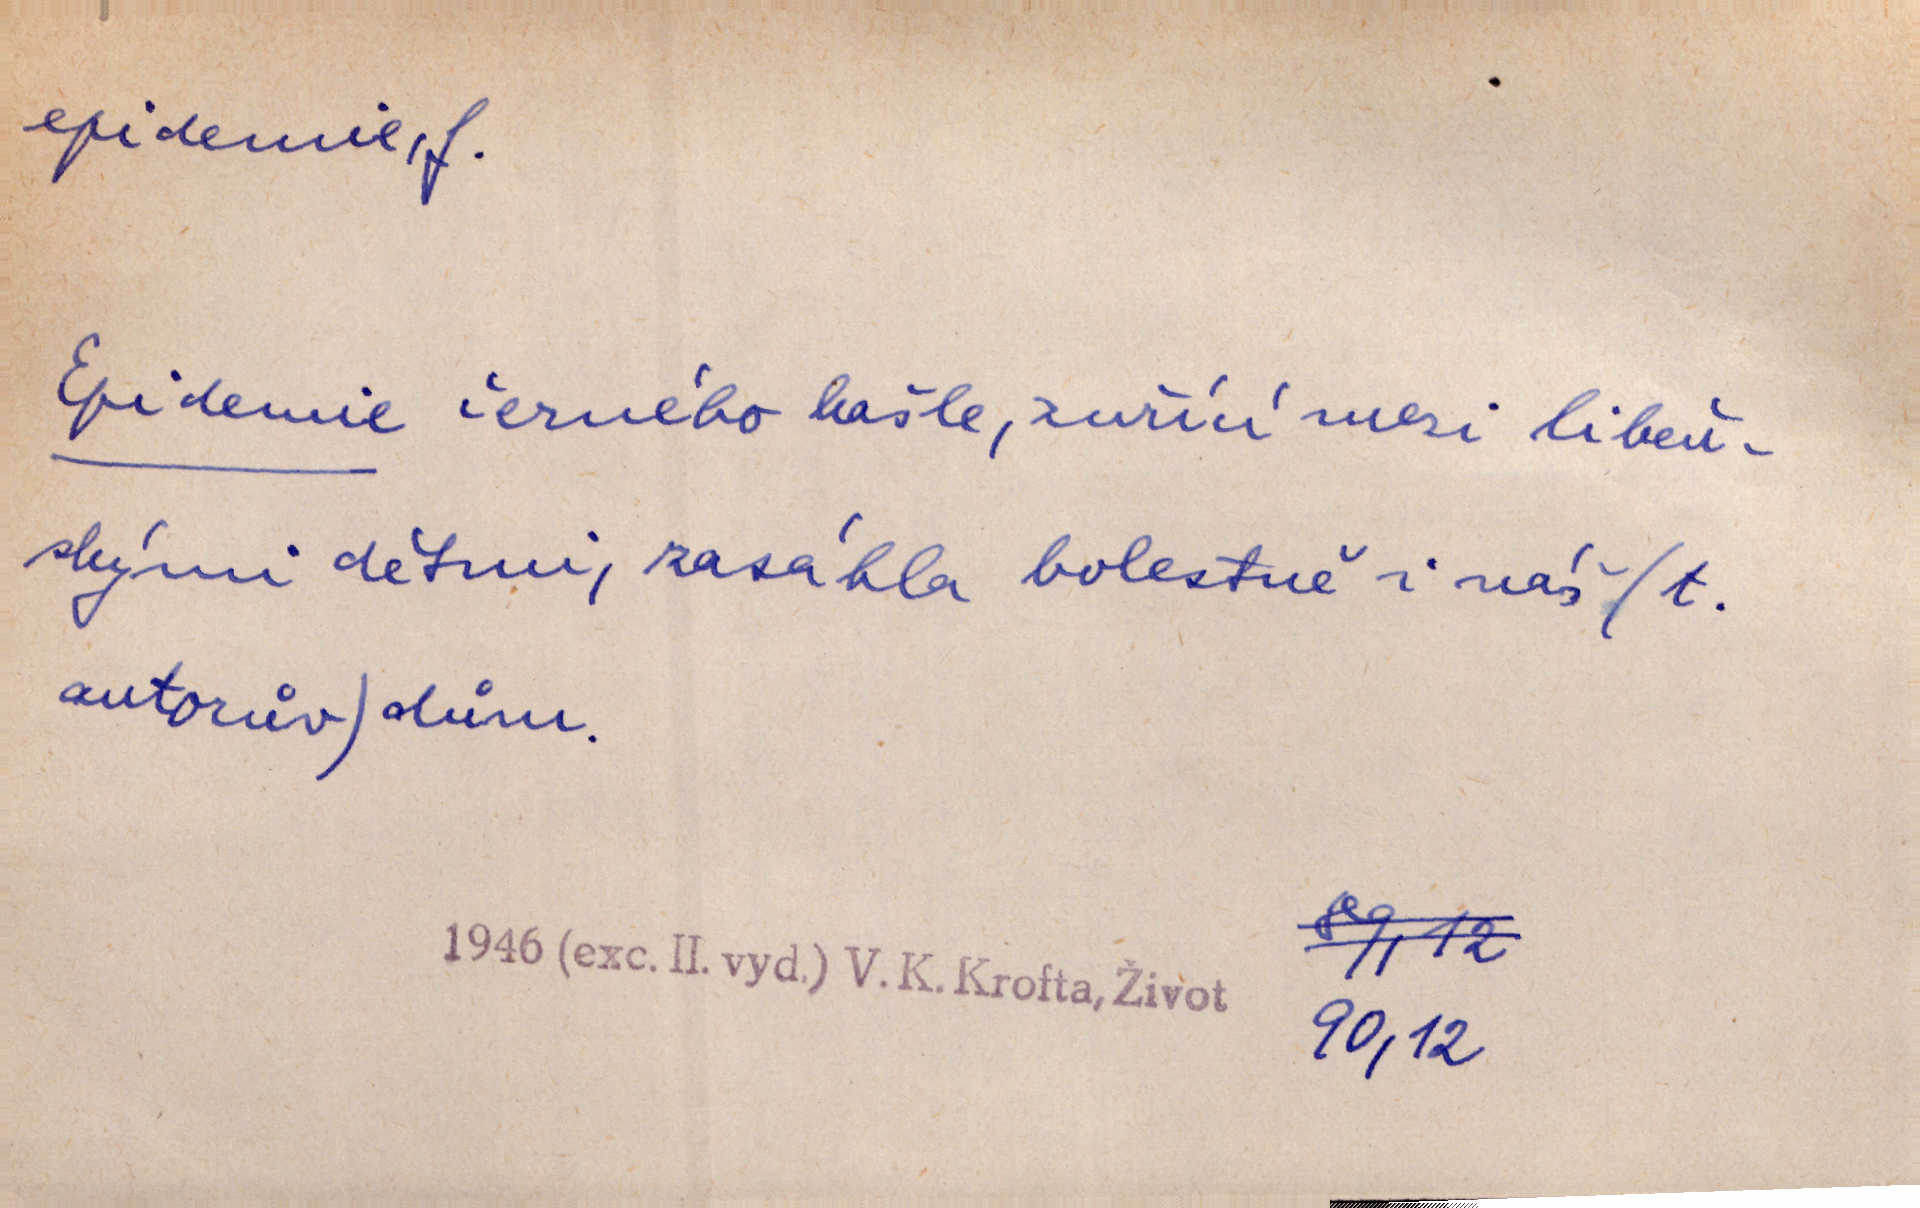 epidemie, f.
Epidemie černého kašle, zuřící mezi libeň-
skými dětmi, zasáhla bolestně i náš (t.
autorův) dům.
89, 12
1946 (exc. II. vyd.) V. K. Krofta, Život
90, 12